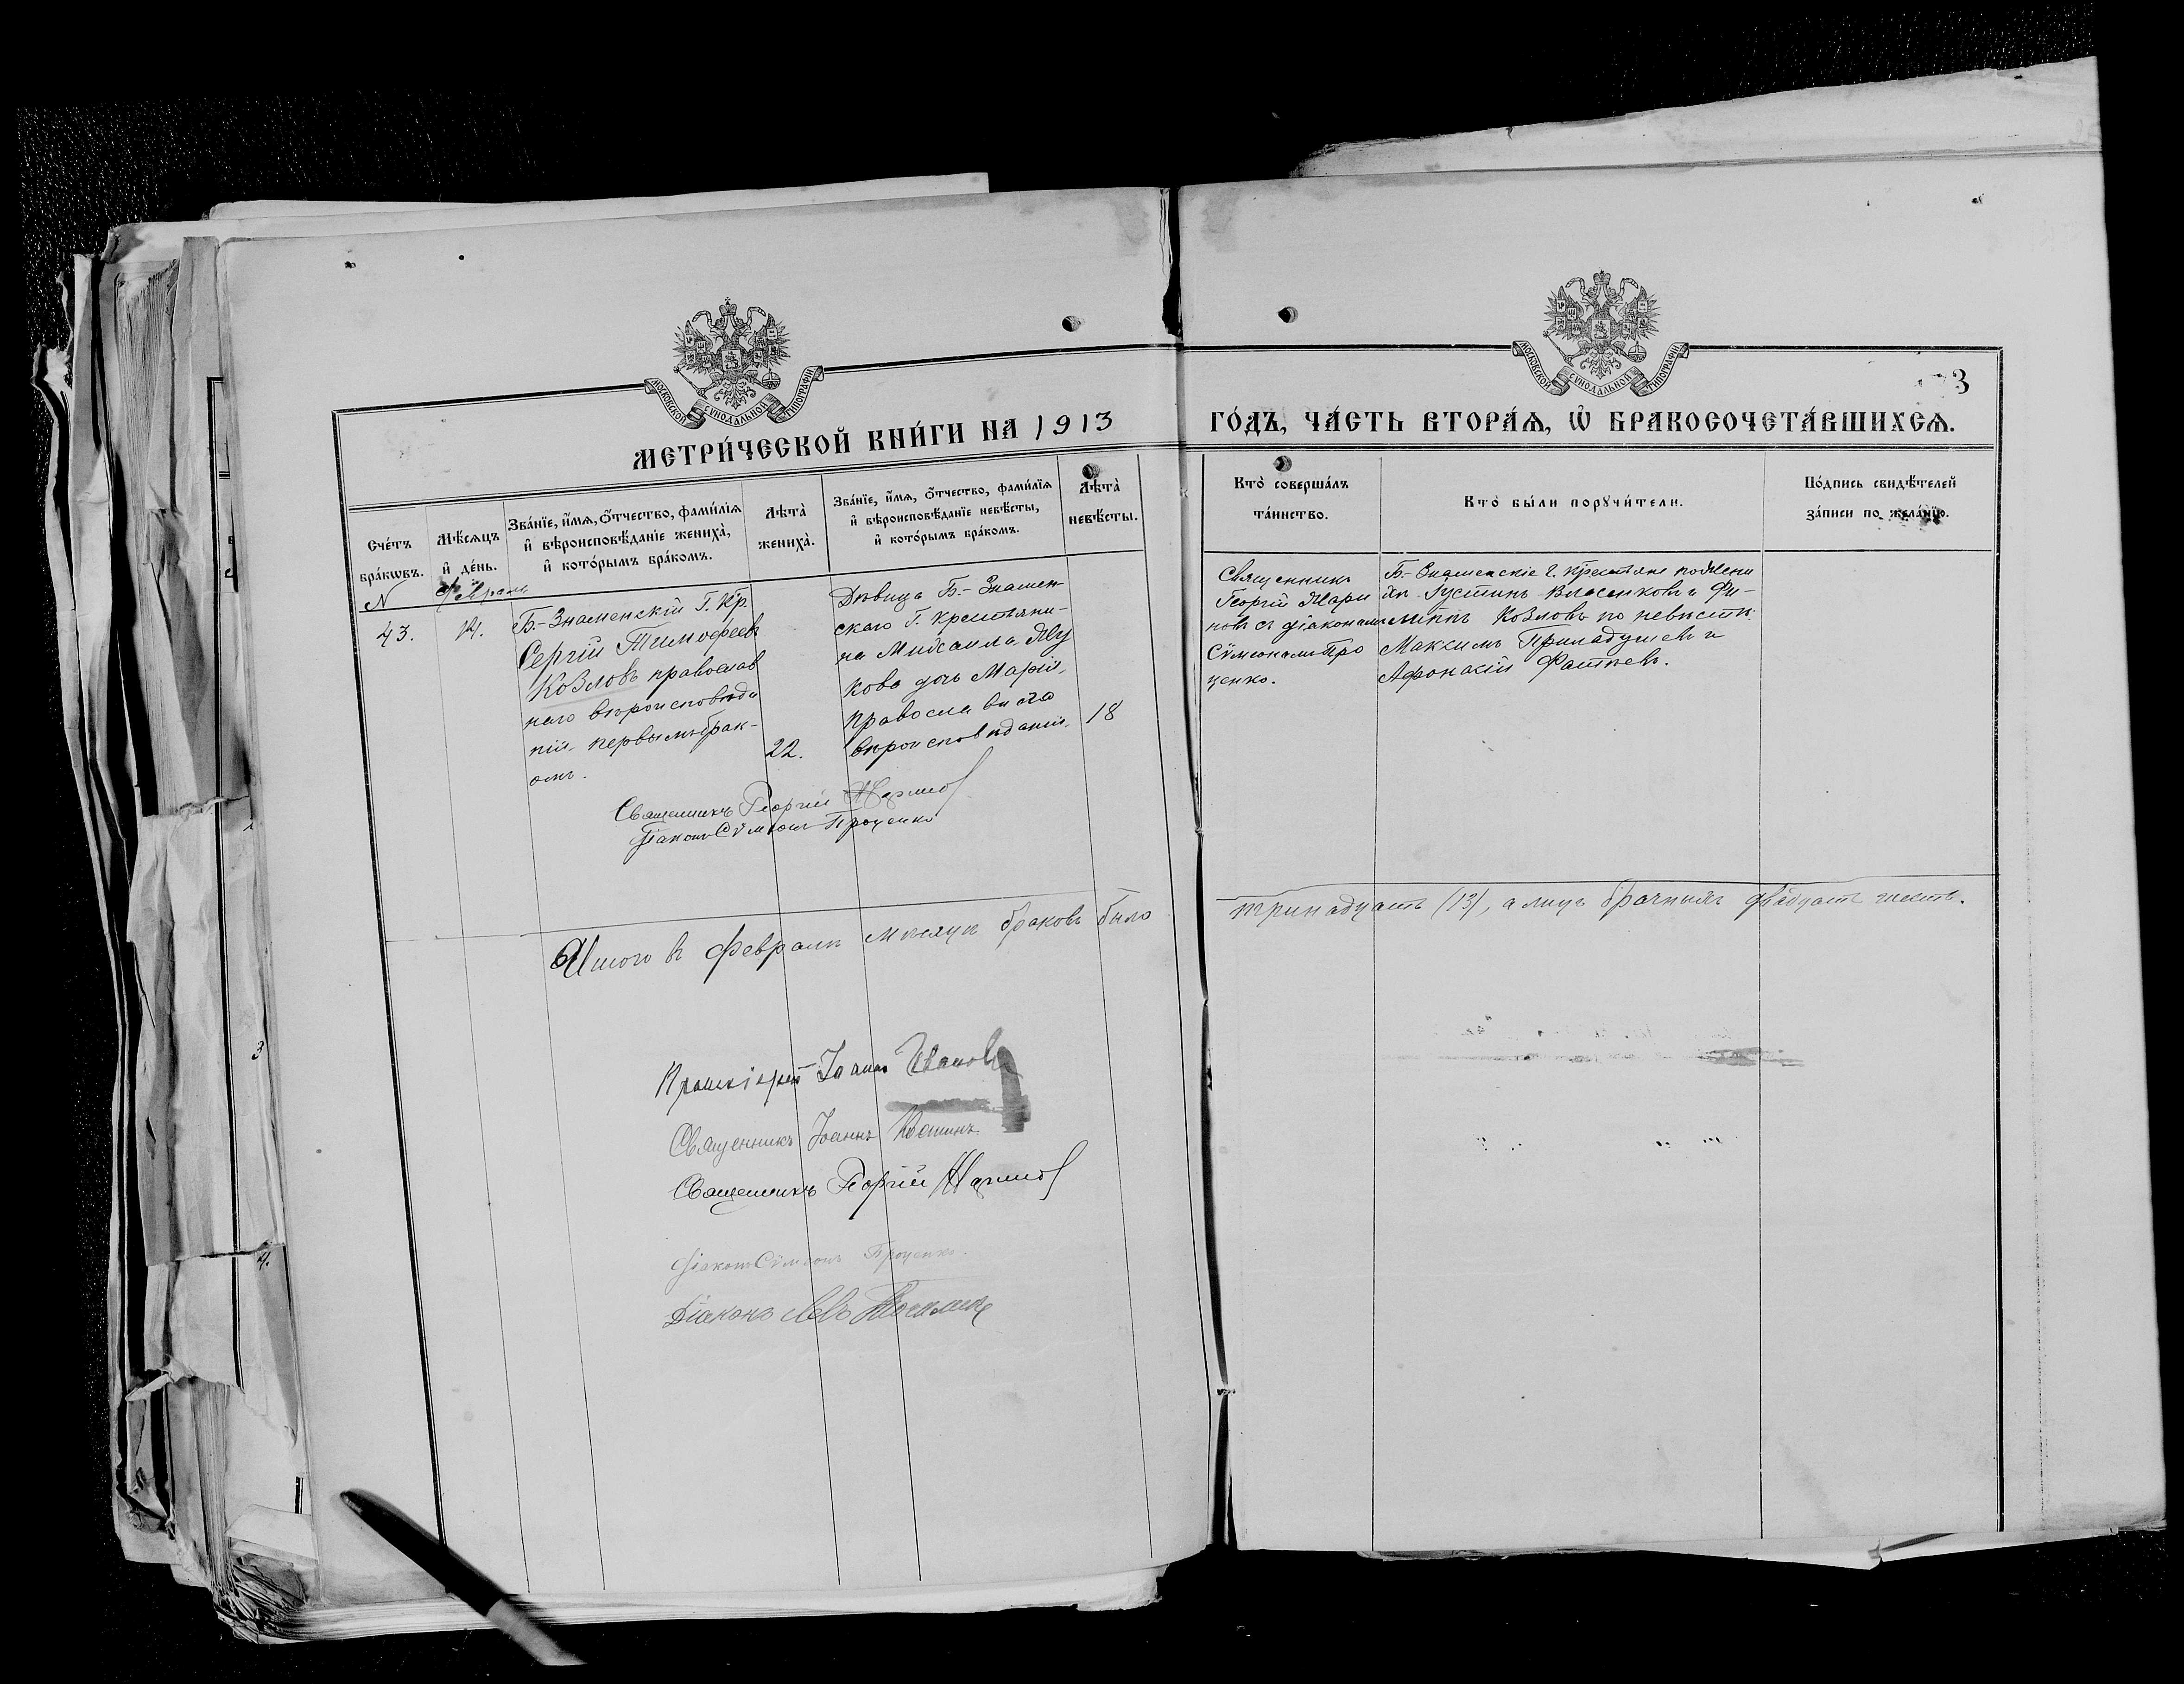 МОСКОВСКОЙ СУНОДАЛЬНОЙ ТИПОГРАФІИ
МОСКОВСКОЙ СУНОДАЛЬНОЙ ТИПОГРАФІИ
3
МЕТРИ́ЧЕСКОЙ КНИ́ГИ НА 1913
ГО́ДЪ, ЧА́СТЬ ВТОРА́Ѧ, Ѽ БРАКОСОЧЕТА́ВШИХСѦ.
Сче́тъ бра́кѡвъ.
Мѣ́сѧцъ и҆ де́нь.
Зва́нїе, и҆́мѧ, ѻ҆́тчество, фами́лїѧ
и҆ вѣроисповѣ́данїе жениха̀,
и҆ кото́рымъ бра́комъ.
Лѣта̀
жениха̀.
Зва́нїе, и҆́мѧ, ѻ҆́тчество, фами́лїѧ
и҆ вѣроисповѣ́данїе невѣ́сты,
и҆ кото́рымъ бра́комъ.
Лѣта̀
невѣ́сты.
Кто̀ соверша́лъ
та́инство.
Кто̀ бы́ли порꙋчи́тели.
По́дпись свидѣ́телей
за́писи по жела́нїю.
№
43.
14.
Б.-Знаменскій Г. Кр.
Сергій Тимофеевъ
Козловъ православ
наго вѣроисповѣда
нія, первымъ брак-
омъ.
22.
Дѣвица Б.-Знамен-
скаго Г. крестьяни-
на Михаила
кова дочь Марія,
православнаго
вѣроисповѣданія,
18
Священникъ
Георгій Мари
новъ съ діакономъ
Сѵмеономъ Про
ценко.
Б.-Знаменскіе Г. крестьяне по жени
хѣ Іустинъ Власенковъ и Фи-
липпъ Козловъ по невѣстѣ:
Максимъ и
Афонасій
Священникъ Георгій Мариновъ
Діаконъ Сѵмеонъ Проценко
Итого въ Февралѣ мѣсяцѣ браковъ было
тринадцать (13), а лицъ брачныхъ двадцать шесть.
Протоіерей Іоаннъ Ивановъ
Священникъ Іоаннъ
Священникъ Георгій Мариновъ
Діаконъ Сѵмеонъ Проценко.
Діаконъ Левъ